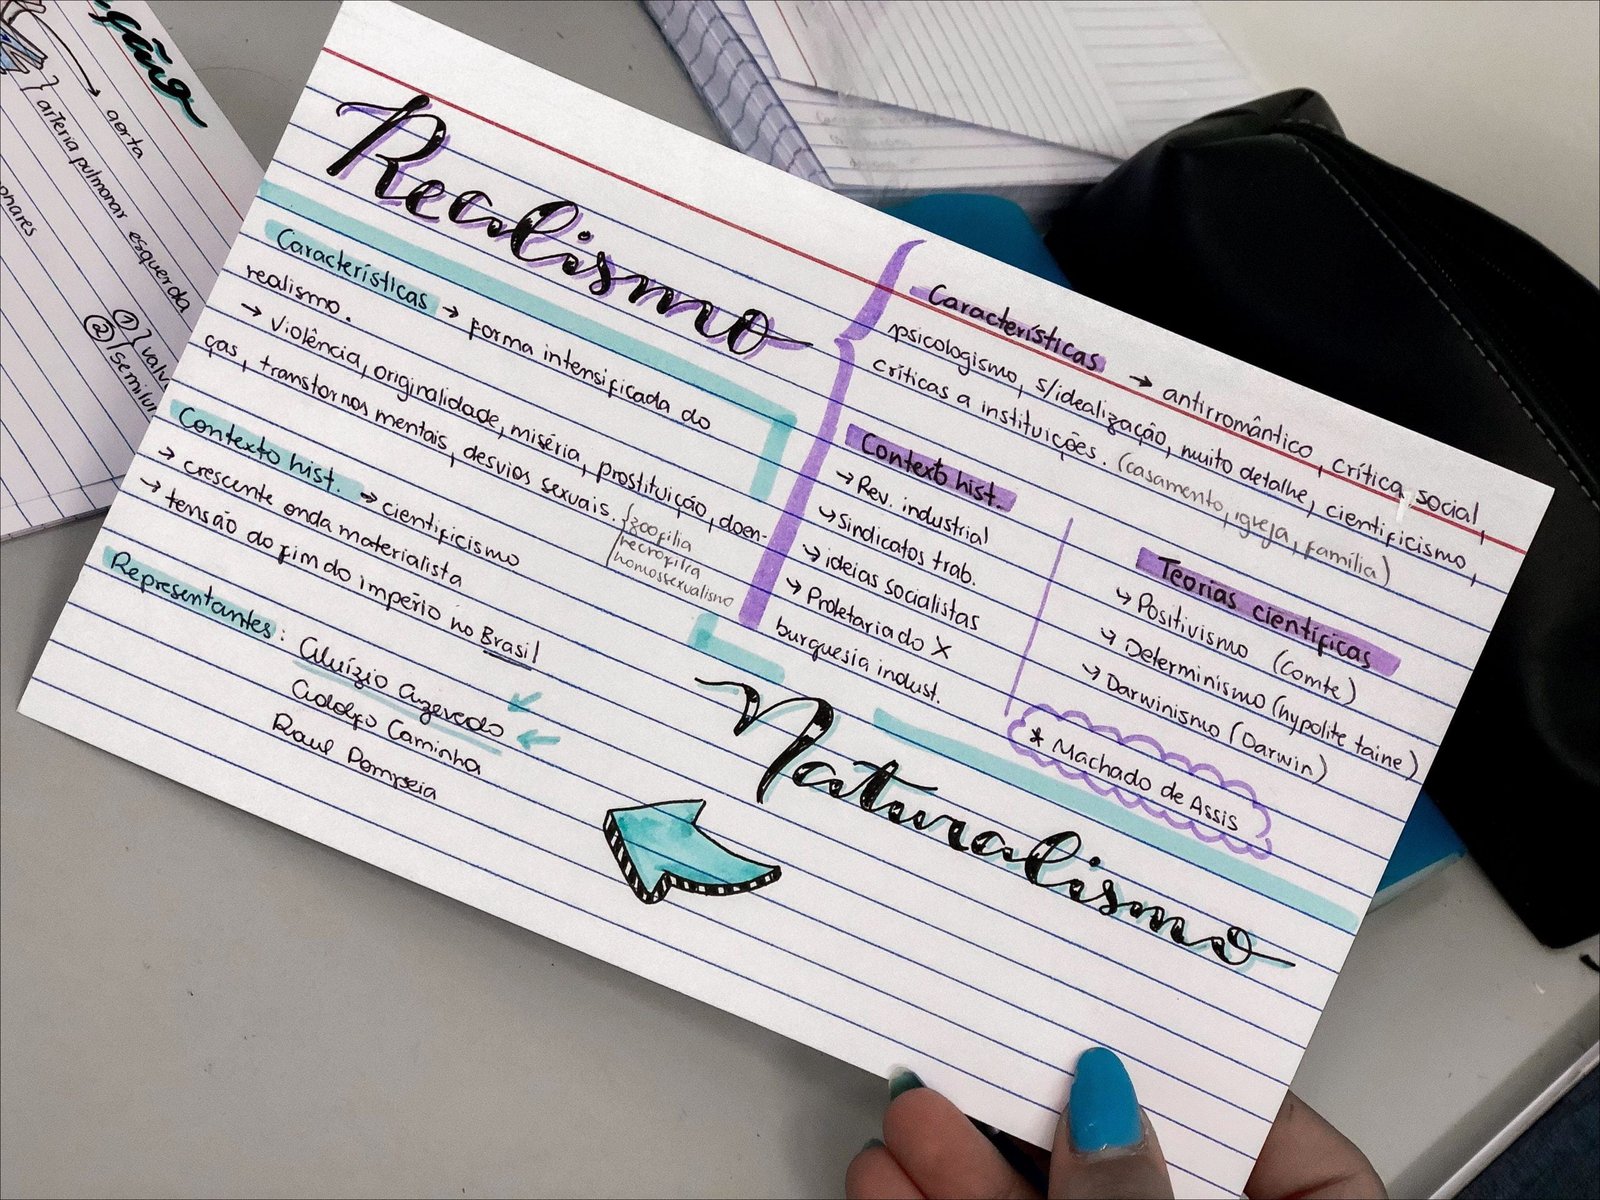 Realismo
Características → antirromântico, crítica social,
psicologismo, s/idealização, muito detalhe, cientificismo,
críticas a instituições. (casamento, igreja, família)
Contexto hist.
→ Rev. industrial
↳ Sindicatos trab.
→ ideias socialistas
↳ Proletariado X
burguesia indust.
Teorias científicas
↳ Positivismo (Comte)
↳ Determinismo (hypolite taine)
↳ Darwinismo (Darwin)
* Machado de Assis
Naturalismo
Características → forma intensificada do
realismo.
→ violência, originalidade, miséria, prostituição, doen-
ças, transtornos mentais, desvios sexuais.
zoofilia
necrofilia
homossexualismo
Contexto hist. → cientificismo
→ crescente onda materialista
→ tensão do fim do império no Brasil
Representantes: Aluízio Azevedo
Adolfo Caminha
Raul Pompeia
aorta
artéria pulmonar esquerda
①
②